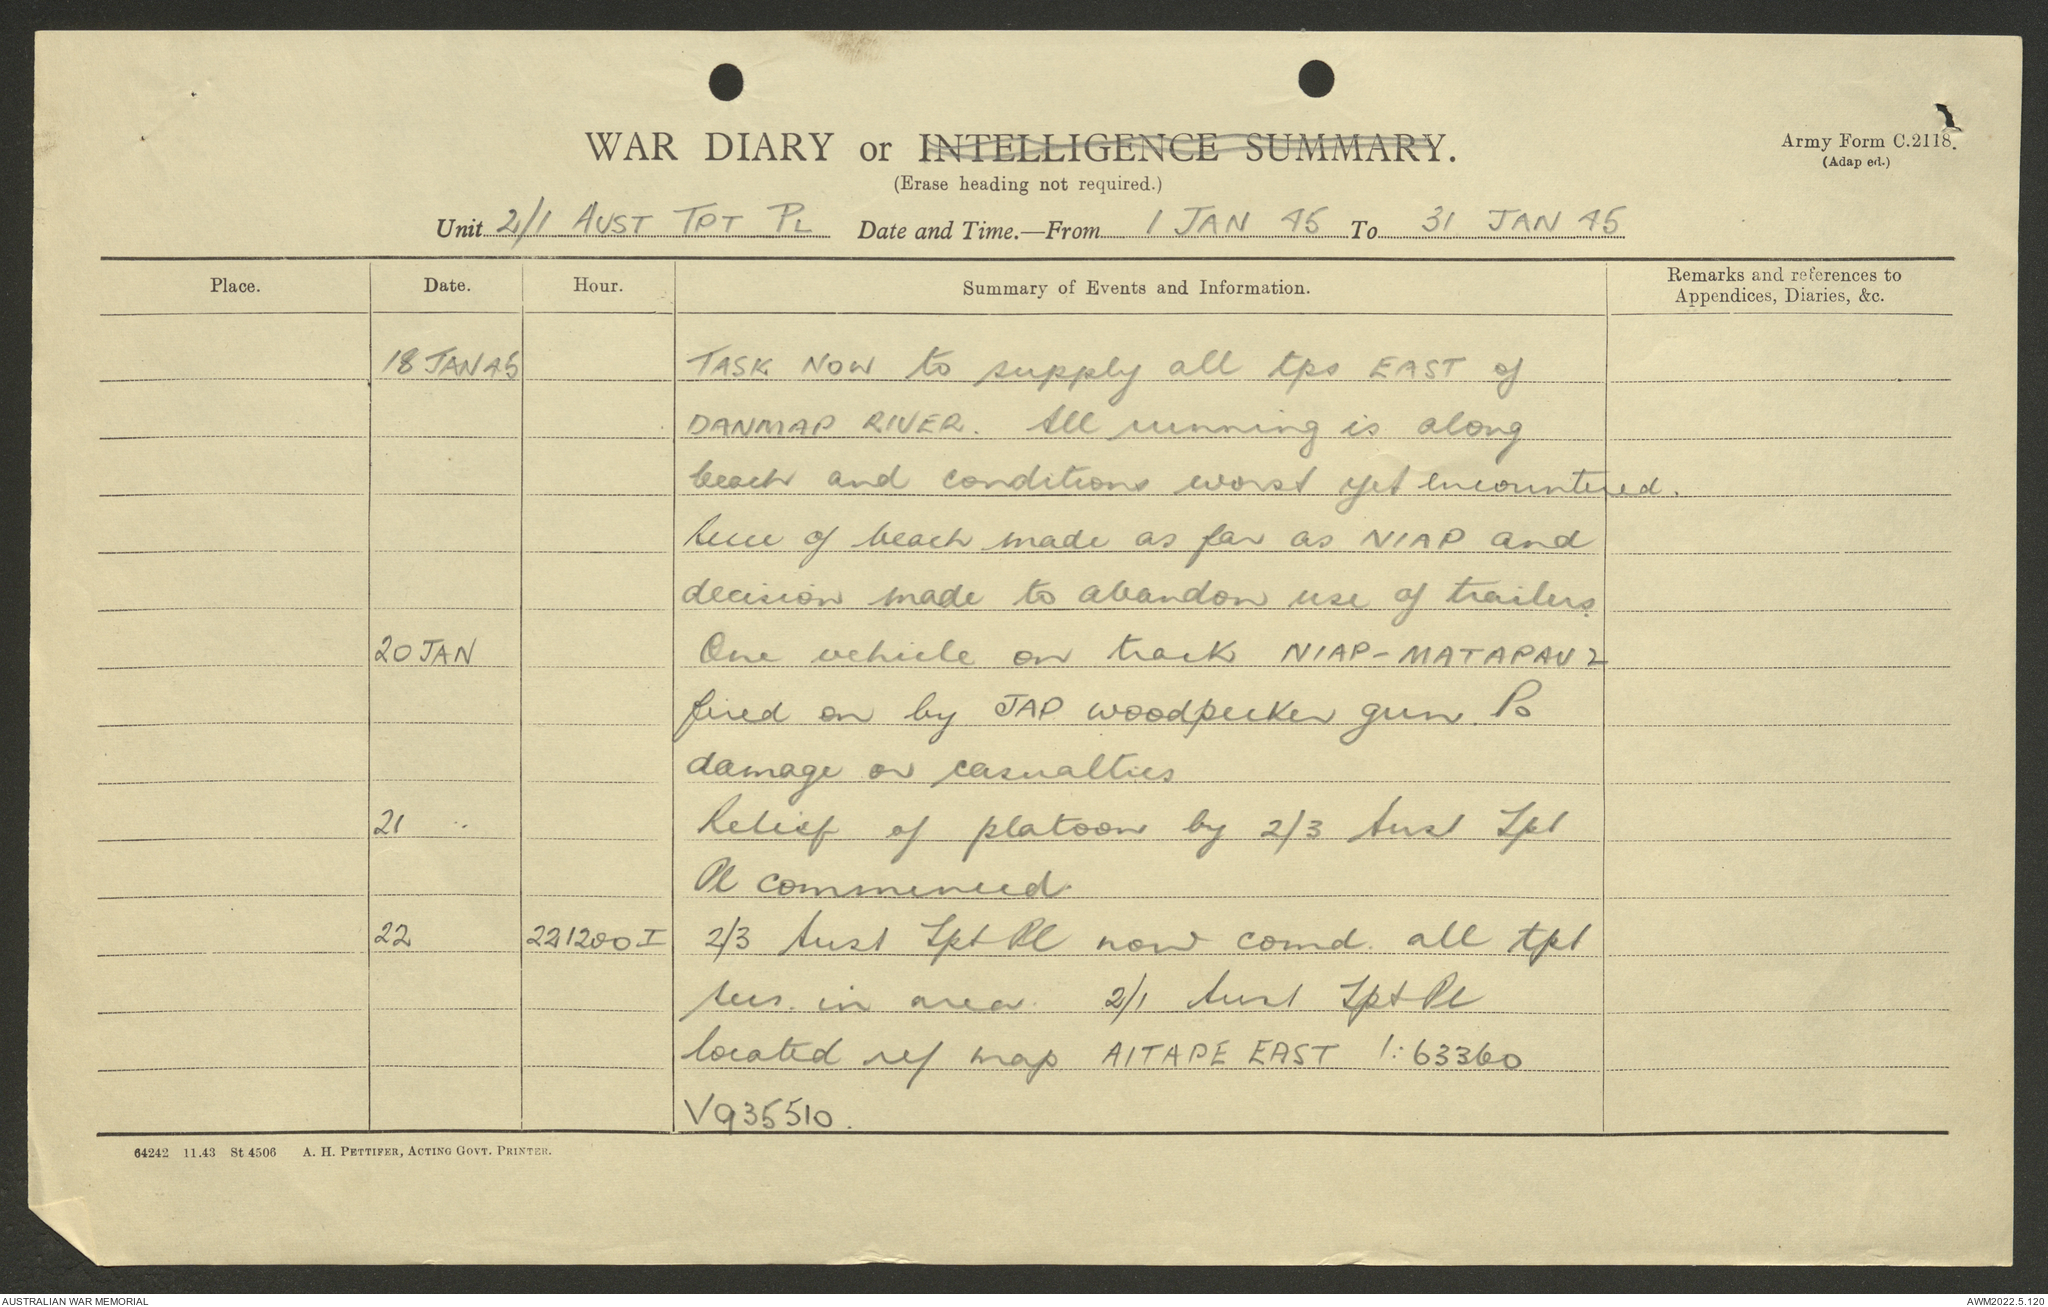 WAR DIARY or INTELLIGENCE SUMMARY.
Army Form C.2118.
(Adapted.)
(Erase heading not required.)
Unit 2/1 AUST TPT PL Date and Time.—From 1 JAN 45 To 31 JAN 45
Place. Date. Hour. Summary of Events and Information. Remarks and references to Appendices, Diaries, &c.
18 JAN 45 TASK NOW to supply all tps EAST of
DANMAP RIVER. All running is along
beach and conditions worst yet encountered.
Recce of beach made as far as NIAP and
decision made to abandon use of trailers.
20 JAN One vehicle on track NIAP-MATAPAU 2
fired on by JAP woodpecker gun. No
damage or casualties
21 " Relief of platoon by 2/3 Aust Tpt
Pl commenced.
22 221200 I 2/3 Aust Tpt Pl now comd. all tpt
in area. 2/1 Aust Tpt Pl
located ref map AITAPE EAST 1:63360
V935510.
64242 11.43 St 4506 A. H. PETTIFER, ACTING GOVT. PRINTER.
AUSTRALIAN WAR MEMORIAL
AWM2022.5.120